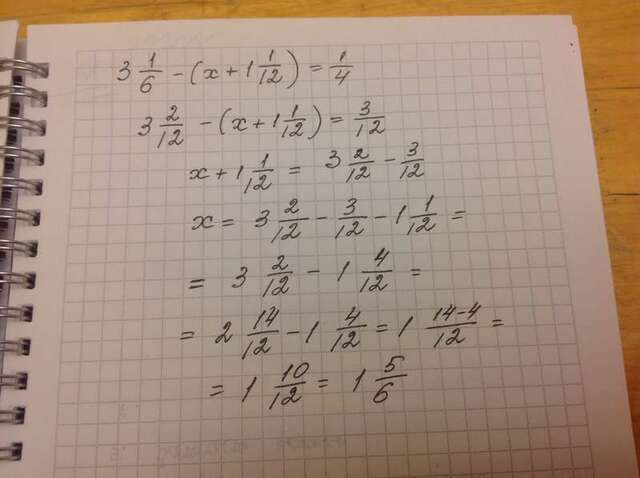 3 1/6 - (x + 1 1/12) = 1/4
3 2/12 - (x + 1 1/12) = 3/12
x + 1 1/12 = 3 2/12 - 3/12
x = 3 2/12 - 3/12 - 1 1/12 =
= 3 2/12 - 1 4/12 =
= 2 14/12 - 1 4/12 = 1 14-4/12 =
= 1 10/12 = 1 5/6